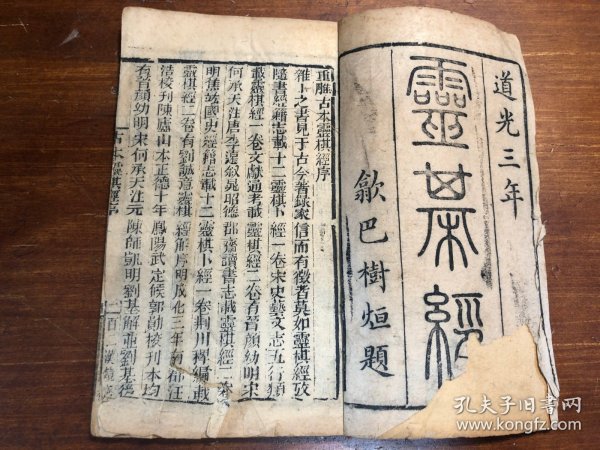 道光三年
靈棊經
歙巴樹烜題
重雕古本靈棋經序
雜卜之書見于古今著錄家信而有徵者莫如靈棋經攷
隨書經籍志載十二靈棋卜經一卷宋史藝文志五行類
載靈棋經一卷文獻通考載靈棋經二卷有晉顏幼明宋
何承天注唐李遠敘晁昭德郡齋讀書志載靈棋經二卷
明焦竑國史經籍志載十二靈棋卜經一卷荆川稗編載
靈棋經二卷有劉誠意靈棋經解序明成化三年南都汪
浩校刊陳盧山本正德十年鳳陽武定候郭勛校刊本均
有晉顏幼明宋何承天注元陳師凱明劉基解重劉基後
古本靈棋經序
一百
漢鏡齋
孔夫子旧书网
www.kongfz.com